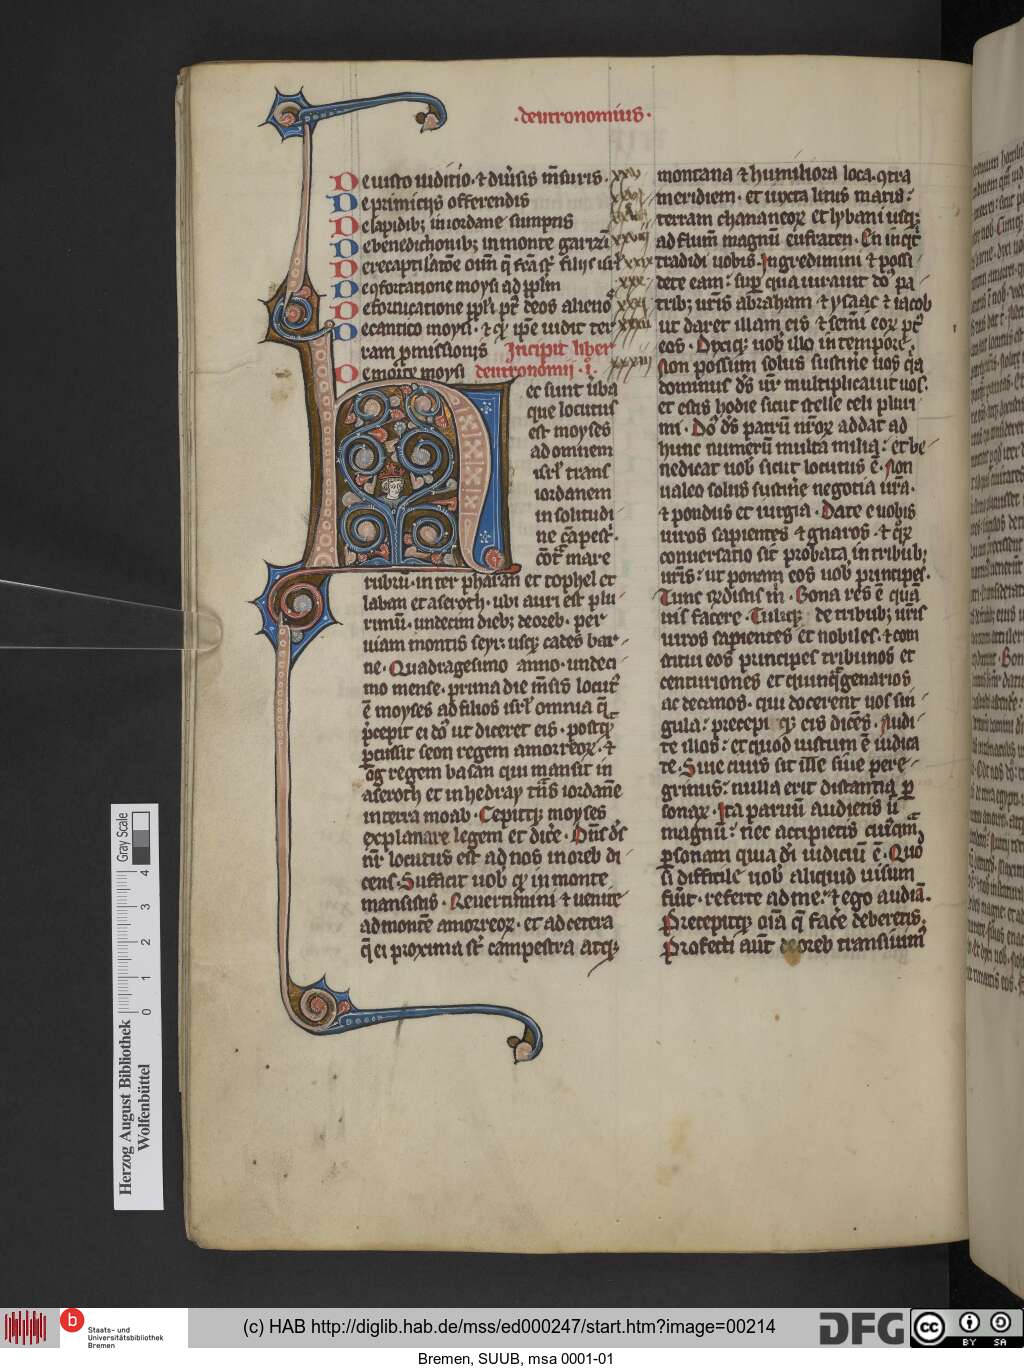 ·deutronomius·
De iusto iuditio · ⁊ diũsis m̃suris · xxv
De primicijs offerendis xxvi
De lapidib; in iordane sumptis xxvii
De benedictionib; in monte garizĩ xxviii
De recapitilatõe om̃ q̃ fc̃a sr̃ filijs isrl̃ xxix
De ꝯfortatione moysi ad pp̃lm xxx
De fornicatione ppl̃i pt̃ deos alienoꝝ xxxi
De cantico moysi · ⁊ qͥ ip̃e uidit ter xxxii
ram ꝓmissionis Incipit liber
De morte moysi deutronomii · i · xxxiii
ec sunt ũba
que locutus
est moyses
ad omnem
isrl̃ trans
iordanem
in solitudi
ne cãpest͛·
cõt͛ mare
rubrũ · inter pharan et tophel et
laban et aseroth · ubi auri est plu
rimũ · undecim dieb; de oreb · per
uiam montis seyr · usq; cades bar
ne · Quadragesimo anno · undeci
mo mense · prima die m̃sis locut᷒
ẽ moyses ad filios isrl̃ omnia q̃
p̃cepit ei dñs ut diceret eis · postq̃
ꝑcussit seon regem amorreoꝝ · ⁊
og regem basan qui mansit in
aseroth et in hedray · tñs iordanẽ
in terra moab · Cepitq; moyses
explanare legem et dic̃e · Dñs ds̃
nr̃ locutus est ad nos in oreb di
cens · Sufficit uob̃ qͥ in monte
mansistis · Reuertimini ⁊ uenite
ad montẽ amorreoꝝ · et ad cetera
q̃ ei proxima st̃ campestra atq;
montana ⁊ humiliora loca · ꝯtra
meridiem · et iuxta litus maris ·
terram chananeoꝝ et lybani usq;
ad flum̃ magnũ eufraten · En inqͥt
tradidi uobis · Ingredimini ⁊ possi
dete eam · sup̃ qua iurauit dñs pa
trib; ur̃is abraham ⁊ ysaac ⁊ iacob
ut daret illam eis ⁊ sem̃i eoꝝ pt̃
eos · Dixiq; uob̃ illo in tempore ·
Non possum solus sustin̾e uos q̃a
dominus ds̃ ur̃ multiplicauit uos ·
et estis hodie sicut stelle celi pluri
mi · Dñs ds̃ patrũ nr̃oꝝ addat ad
hunc numerũ multa milia · et be
nedicat uob̃ sicut locutus ẽ · Non
ualeo solus sustin̾e negotia ur̃a ·
⁊ pondus et iurgia · Date e uobis
uiros sapientes ⁊ gnaros · ⁊ qͦꝝ
conuersatio sit ꝓbata in tribub;
ur̃is · ut ponam eos uob̃ principes ·
Tunc rñdistis m̃ · Bona res ẽ quã
uis facere · Tuliq; de tribub; ur̃is
uiros sapientes et nobiles · ⁊ con
stitui eos principes tribunos et
centuriones et quinq̃genarios
ac decanos · qui docerent uos sin
gula · precepi q; eis dicẽs · Audi
te illos · et quod iustum ẽ iudica
te · Siue ciuis sit ille siue pere
grinus · nulla erit distantia ꝑ
sonaꝝ · Ita paruũ audietis ut
magnũ · nec accipietis cuiusq̃
ꝑsonam quia di᷒ iudiciũ ẽ · Quod
si difficile uob̃ aliquid uisum
fuit · referte ad me · ⁊ ego audiã ·
Precepitq; oĩa q̃ fac̃e deberetis ·
Profecti aut̃ de oreb transiuim᷒
Gray Scale
0 1 2 3 4
Herzog August Bibliothek
Wolfenbüttel
HAB
b
Staats- und
Universitätsbibliothek
Bremen
(c) HAB http://diglib.hab.de/mss/ed000247/start.htm?image=00214
DFG
cc BY SA
Bremen, SUUB, msa 0001-01